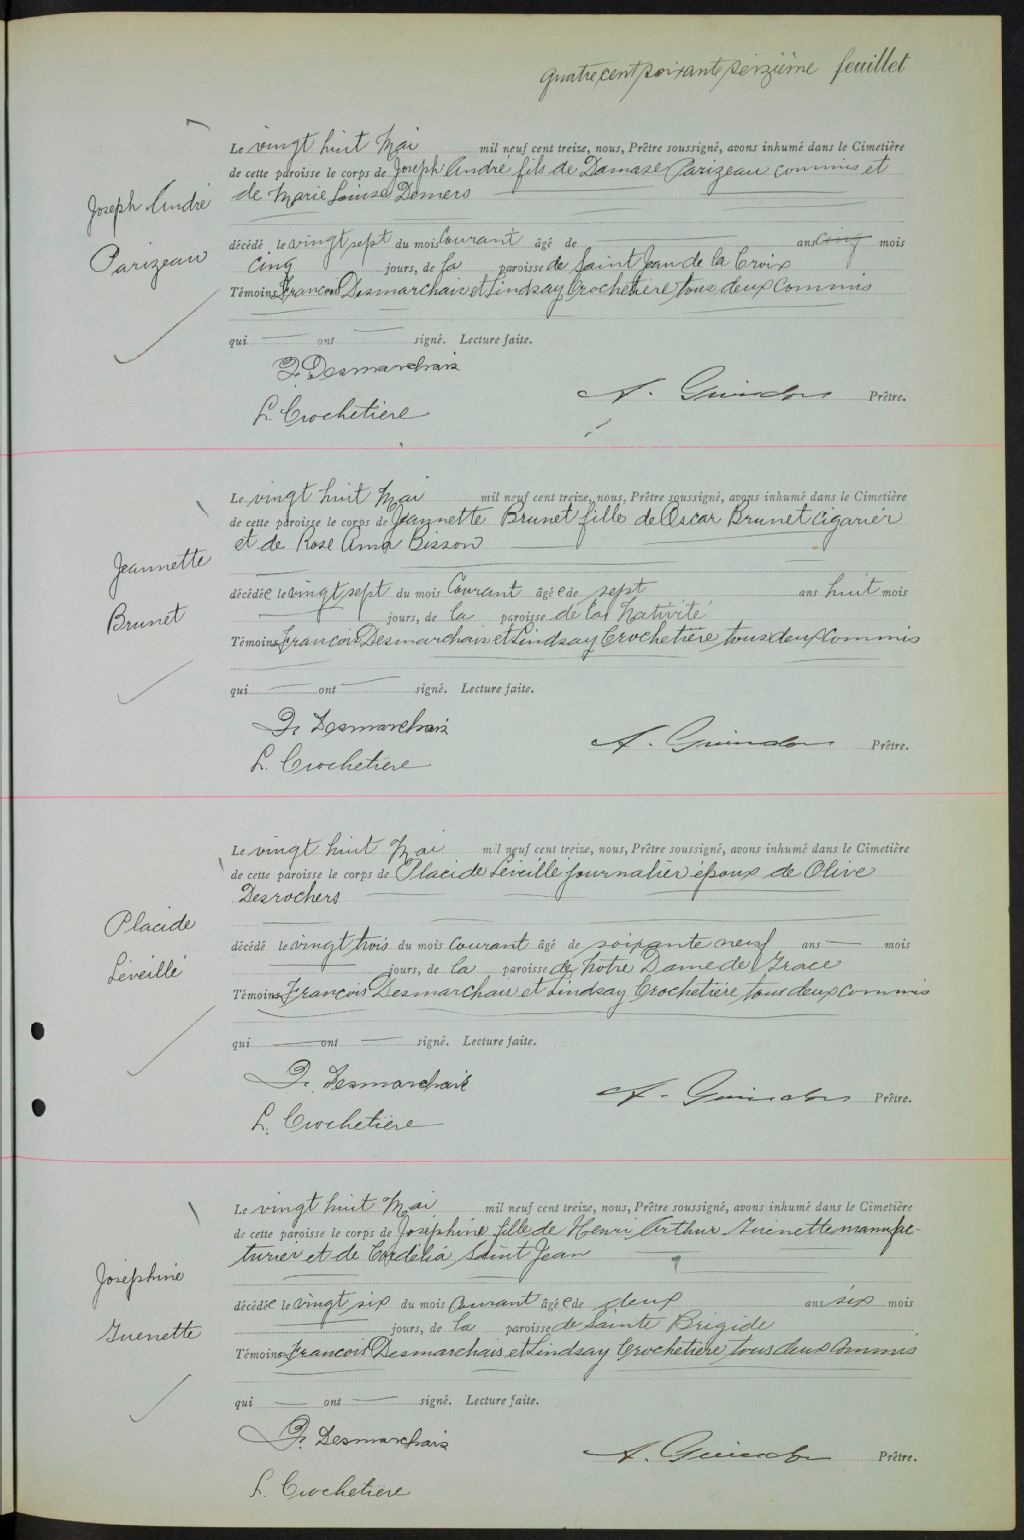 quatre cent soixante seizième feuillet
Joseph André
Parizeau
Le vingt huit Mai mil neuf cent treize, nous, Prêtre soussigné, avons inhumé dans le Cimetière
de cette paroisse le corps de Joseph André fils de Damase Parizeau commis et
de Marie Louise Demers
décédé le vingt sept du mois Courant âgé de ans cinq mois
cinq jours, de la paroisse de Saint Jean de la Croix
Témoins François Desmarchais et Lindsay Crochetière tous deux commis
qui ont signé. Lecture faite.
F. Desmarchais
A. Guindon Prêtre.
L. Crochetière
Jeannette
Brunet
Le vingt huit Mai mil neuf cent treize, nous, Prêtre soussigné, avons inhumé dans le Cimetière
de cette paroisse le corps de Jeannette Brunet fille de Oscar Brunet cigarier
et de Rose Anna Bisson
décédée le vingt sept du mois Courant âgée de sept ans huit mois
jours, de la paroisse de la Nativité
Témoins François Desmarchais et Lindsay Crochetière tous deux commis
qui ont signé. Lecture faite.
F. Desmarchais
A. Guindon Prêtre.
L. Crochetière
Placide
Léveillé
Le vingt huit Mai mil neuf cent treize, nous, Prêtre soussigné, avons inhumé dans le Cimetière
de cette paroisse le corps de Placide Léveillé journalier époux de Olive
Desrochers
décédé le vingt trois du mois Courant âgé de soixante neuf ans mois
jours, de la paroisse de Notre Dame de Grace
Témoins François Desmarchais et Lindsay Crochetière tous deux commis
qui ont signé. Lecture faite.
F. Desmarchais
A. Guindon Prêtre.
L. Crochetière
Joséphine
Guenette
Le vingt huit Mai mil neuf cent treize, nous, Prêtre soussigné, avons inhumé dans le Cimetière
de cette paroisse le corps de Joséphine fille de Henri Arthur Guenette manufac-
turier et de Cordélia Saint Jean
décédée le vingt six du mois Courant âgée de deux ans six mois
jours, de la paroisse de Sainte Brigide
Témoins François Desmarchais et Lindsay Crochetière tous deux commis
qui ont signé. Lecture faite.
F. Desmarchais
A. Guindon Prêtre.
L. Crochetière